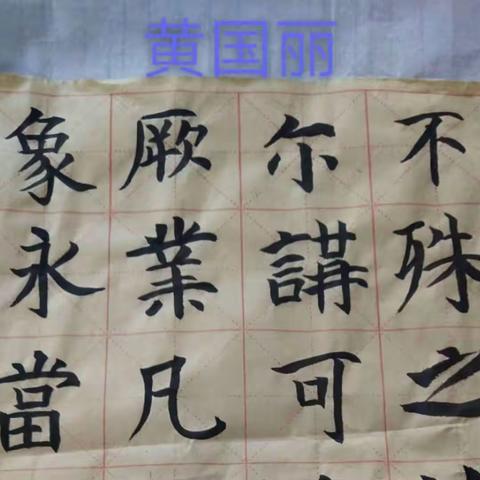 黄国丽
不殊之
尔講可
厥業凡
象永當